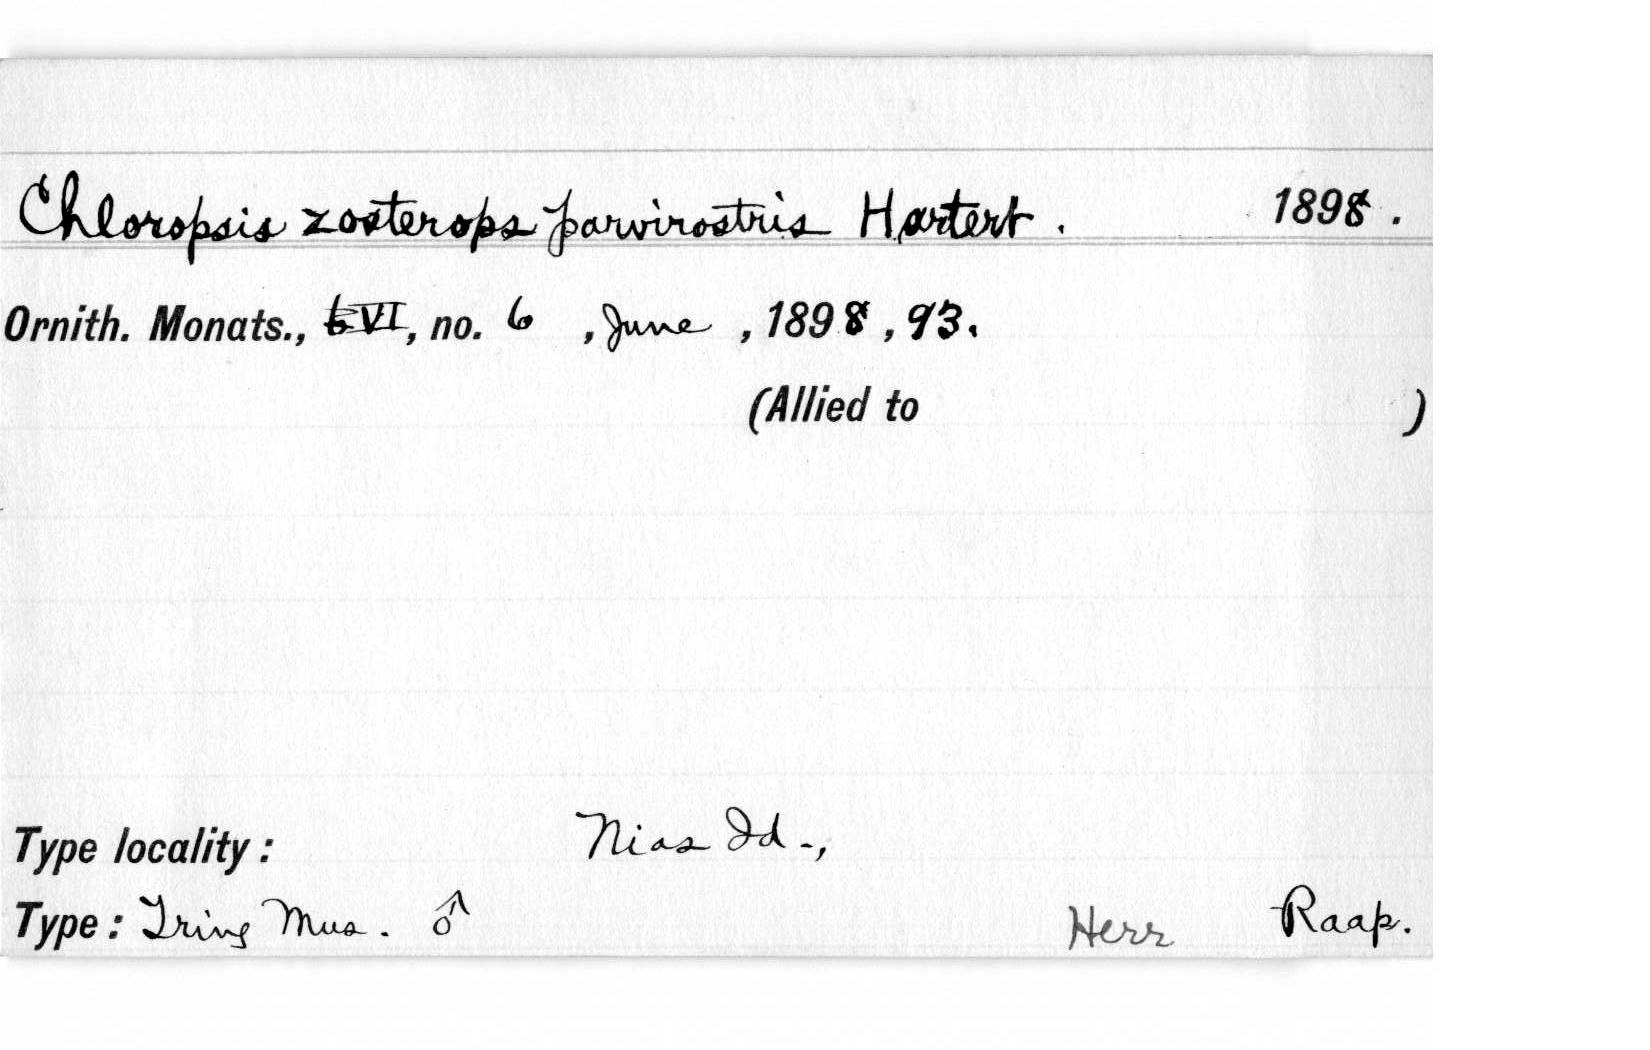 Chloropsis zosterops parvirostris Hartert. 1898.
Ornith. Monats., VI, no. 6, June, 1898, 93.
(Allied to )
Type locality: Nias Id.,
Type: Tring Mus. ♂ Herr Raap.